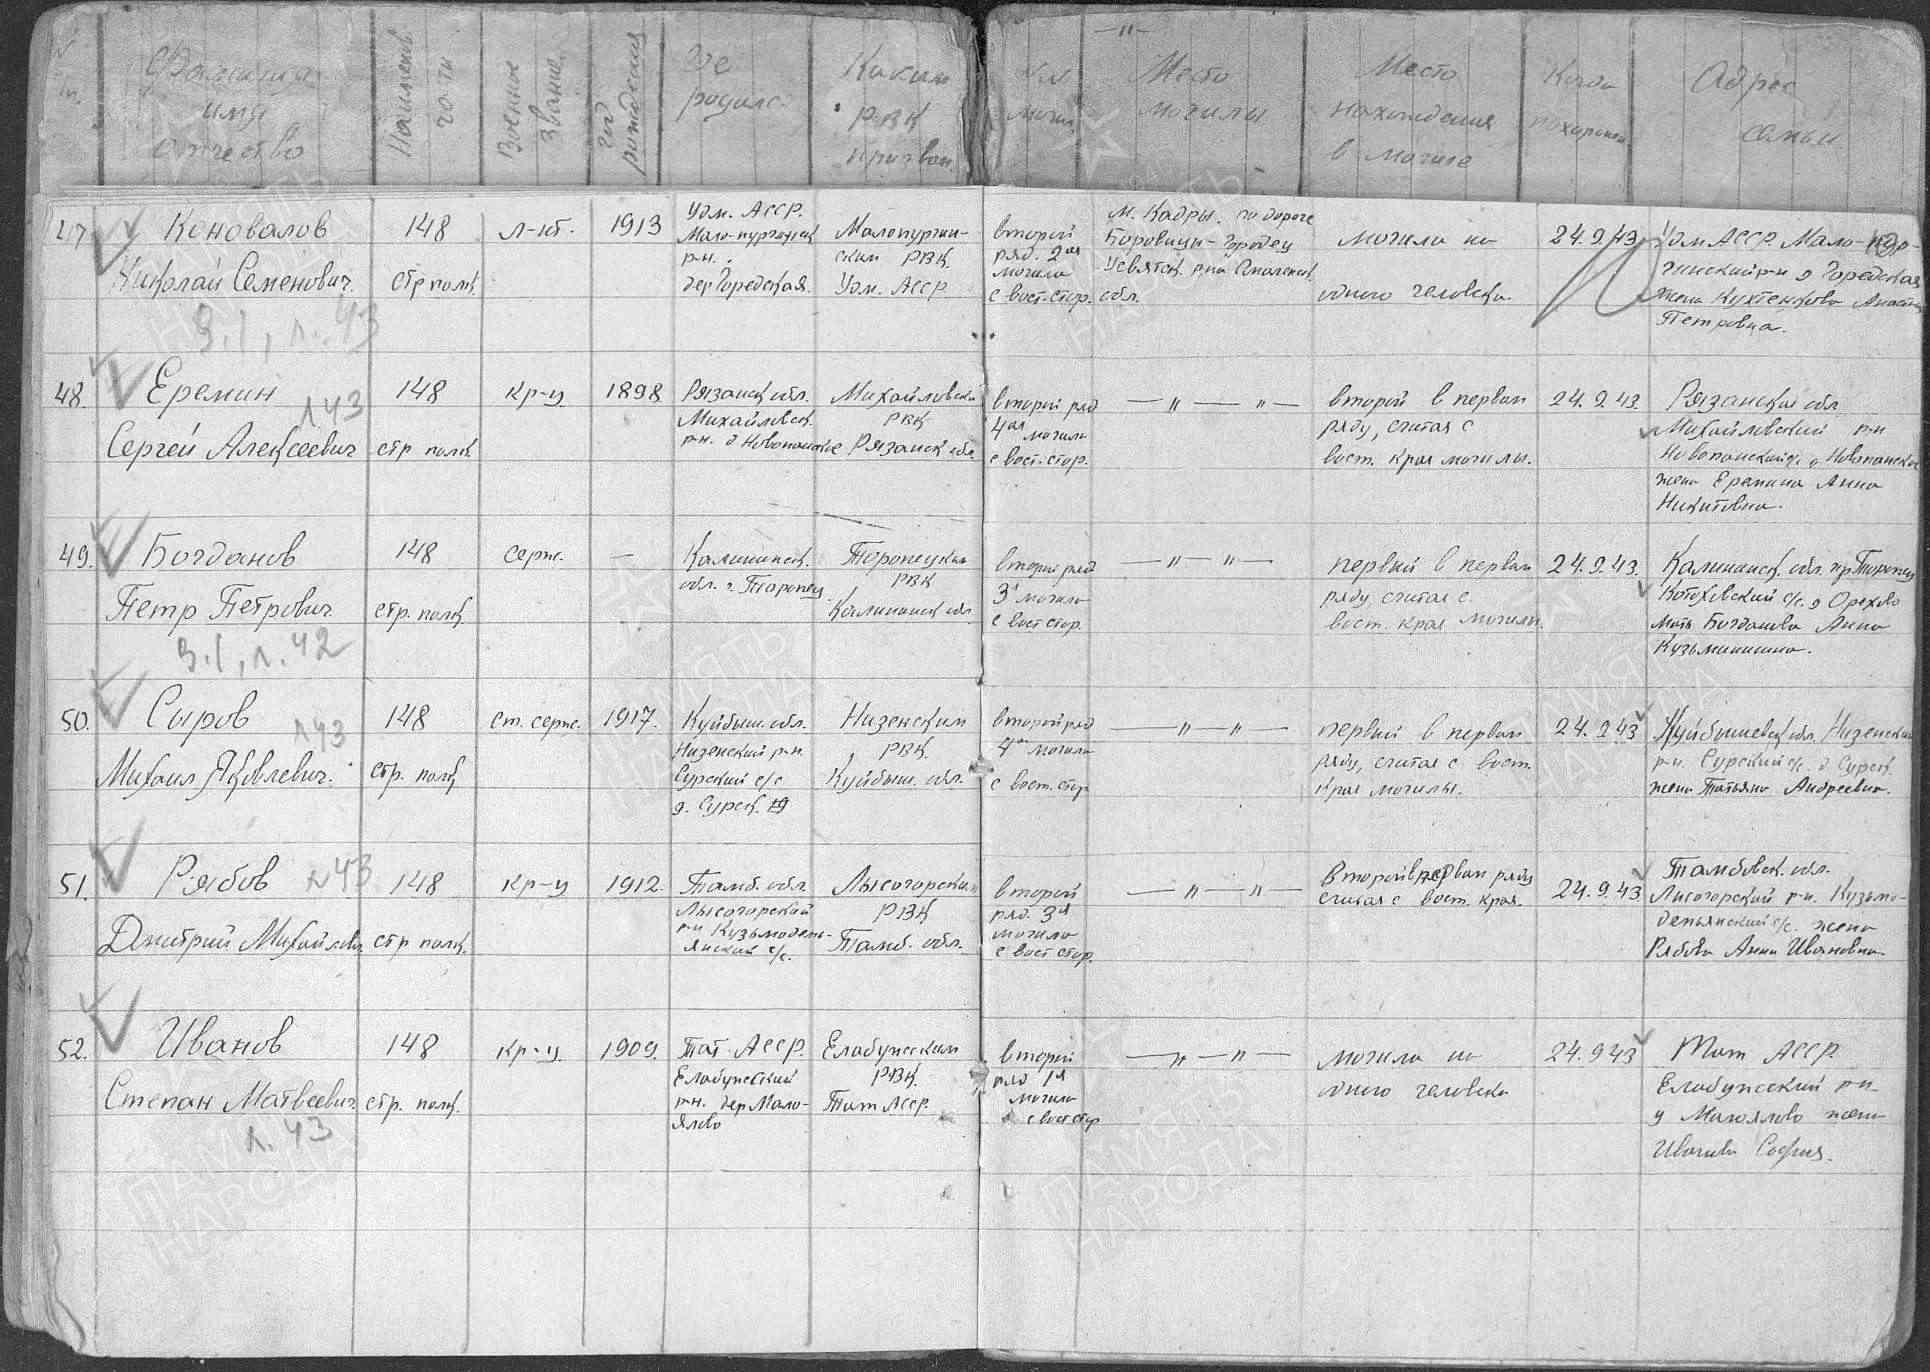 Фамилия имя отчество
Наименов. ча-ти
Военное звание
год рождения
Где родилс.
Каким РВК призван.
№№ могил.
—"—
Место могилы
Место нахождения в могиле
Когда похоронен
Адрес семьи
47
Коновалов
Николай Семенович.
З.1, л. 43
148
стр полк.
л-нт.
1913
Удм. АССР.
Мало-пургинск
р-н.
дер Городская.
Малопургин-
ским РВК
Удм. АССР
второй
ряд. 2ая
могила
с вост. стор.
м. Кадры. по дороге
Боровицы-Городец
Усвятск. р-на Смоленск.
обл.
могила на
одного человека.
24.9.43
Удм АССР. Мало-пур-
гинский р-н д Городская
жена
Петровна.
48.
Еремин
л 43
Сергей Алексеевич
148
стр полк.
кр-ц.
1898
Рязанск обл.
Михайловск.
р-н. д Новопанское
Михайловским
РВК
Рязанск обл.
второй ряд
4ая могила
с вост. стор.
—"—"—
второй в первом
ряду, считая с
вост. края могилы.
24.9.43
Рязанская обл
Михайловский р-н
Новопанский с/с д Новопанское
жена Еремина Анна
Никитовна.
49.
Богданов
Петр Петрович
З.1, л. 42
148
стр. полк.
серж.
—
Калининск.
обл. г. Торопец.
Торопецким
РВК
Калининск обл.
второй ряд
3я могила
с вост стор.
—"—"—
первый в первом
ряду, считая с
вост. края могилы.
24.9.43.
Калининск. обл. Торопец
с/с. д Орехово
мать Богданова Анна
Кузьминишна.
50.
Сыров
л 43
Михаил Яковлевич.
148
стр. полк
ст. серж.
1917.
Куйбыш. обл.
Низенский р-н
Сурский с/с
д. Сурск.
Низенским
РВК
Куйбыш. обл.
второй ряд
4я могила
с вост. стор
—"—"—
первый в первом
ряду, считая с вост.
края могилы.
24.9.43
Куйбышевск обл. Низенский
р-н. Сурский с/с. д Сурск.
жена Татьяна Андреевна.
51.
Рябов л 43
Дмитрий Михайлович
148
стр полк.
кр-ц
1912.
Тамб. обл.
Лысогорский
р-н Кузьмодемь-
янский с/с.
Лысогорским
РВК
Тамб. обл.
второй
ряд. 3я
могила
с вост стор.
—"—"—
Второй в первом ряду
считая с вост. края.
24.9.43
Тамбовск. обл.
Лысогорский р-н. Кузьмо-
демьянский с/с. жена
Рябова Анна Ивановна.
52.
Иванов
Степан Матвеевич
л. 43
148
стр. полк.
кр-ц.
1909.
Тат. АССР.
Елабужский
р-н. дер Мало-
Ялово
Елабужским
РВК.
Тат АССР.
второй
ряд 1я
могила
с вост стор
—"—"—
могила на
одного человека
24.9 43
Тат АССР
Елабужский р-н
д Малоялово жена
Иванова София.
ПАМЯТЬ НАРОДА